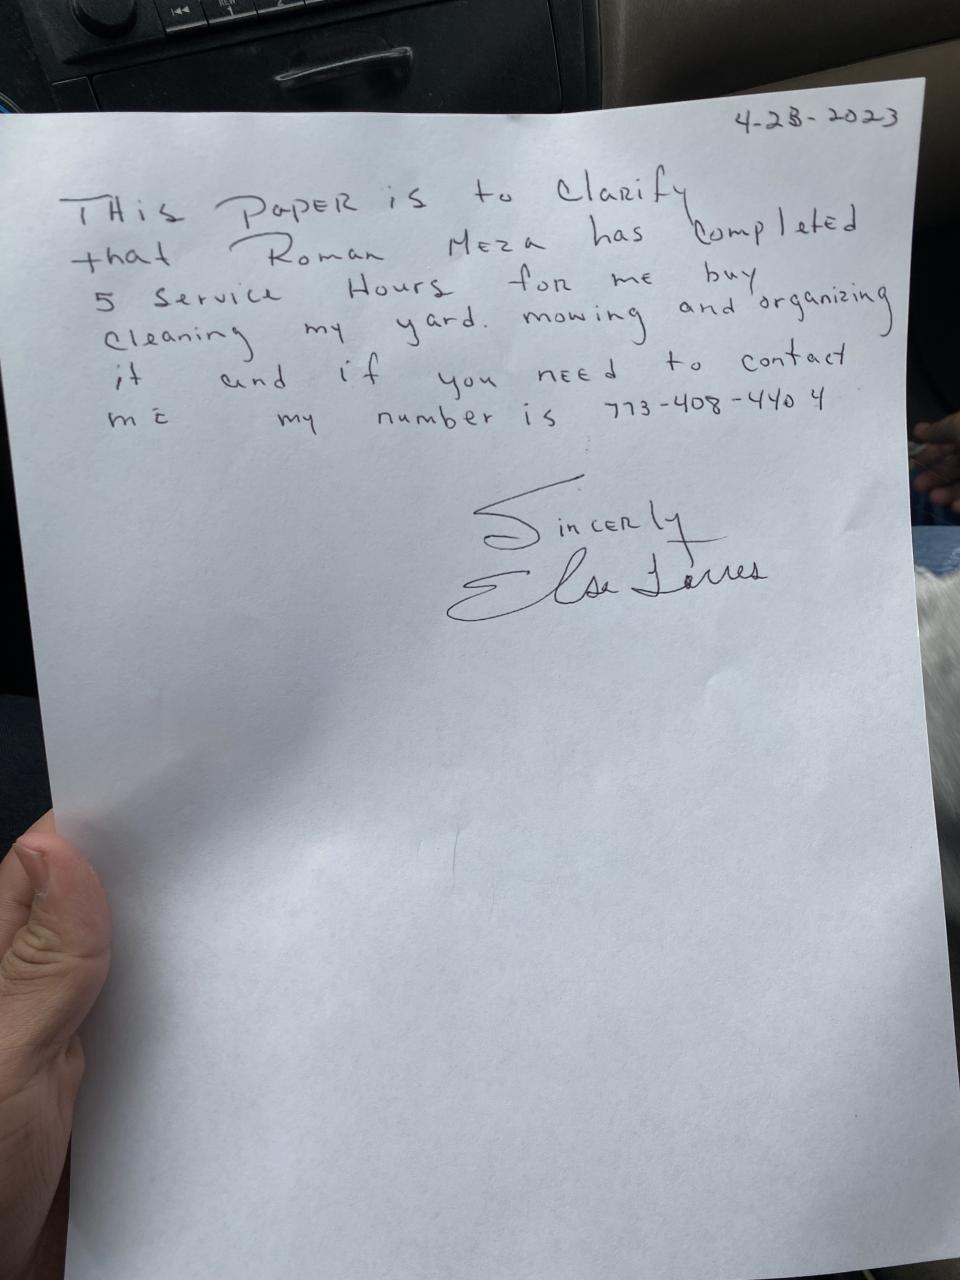 4-28-2023
THis PapER is to Clarify
that Roman Meza has completed
5 Service Hours for me buy
cleaning my yard. mowing and organizing
it and if you need to contact
me my number is 773-408-4404
Sincerly
Elsa Torres